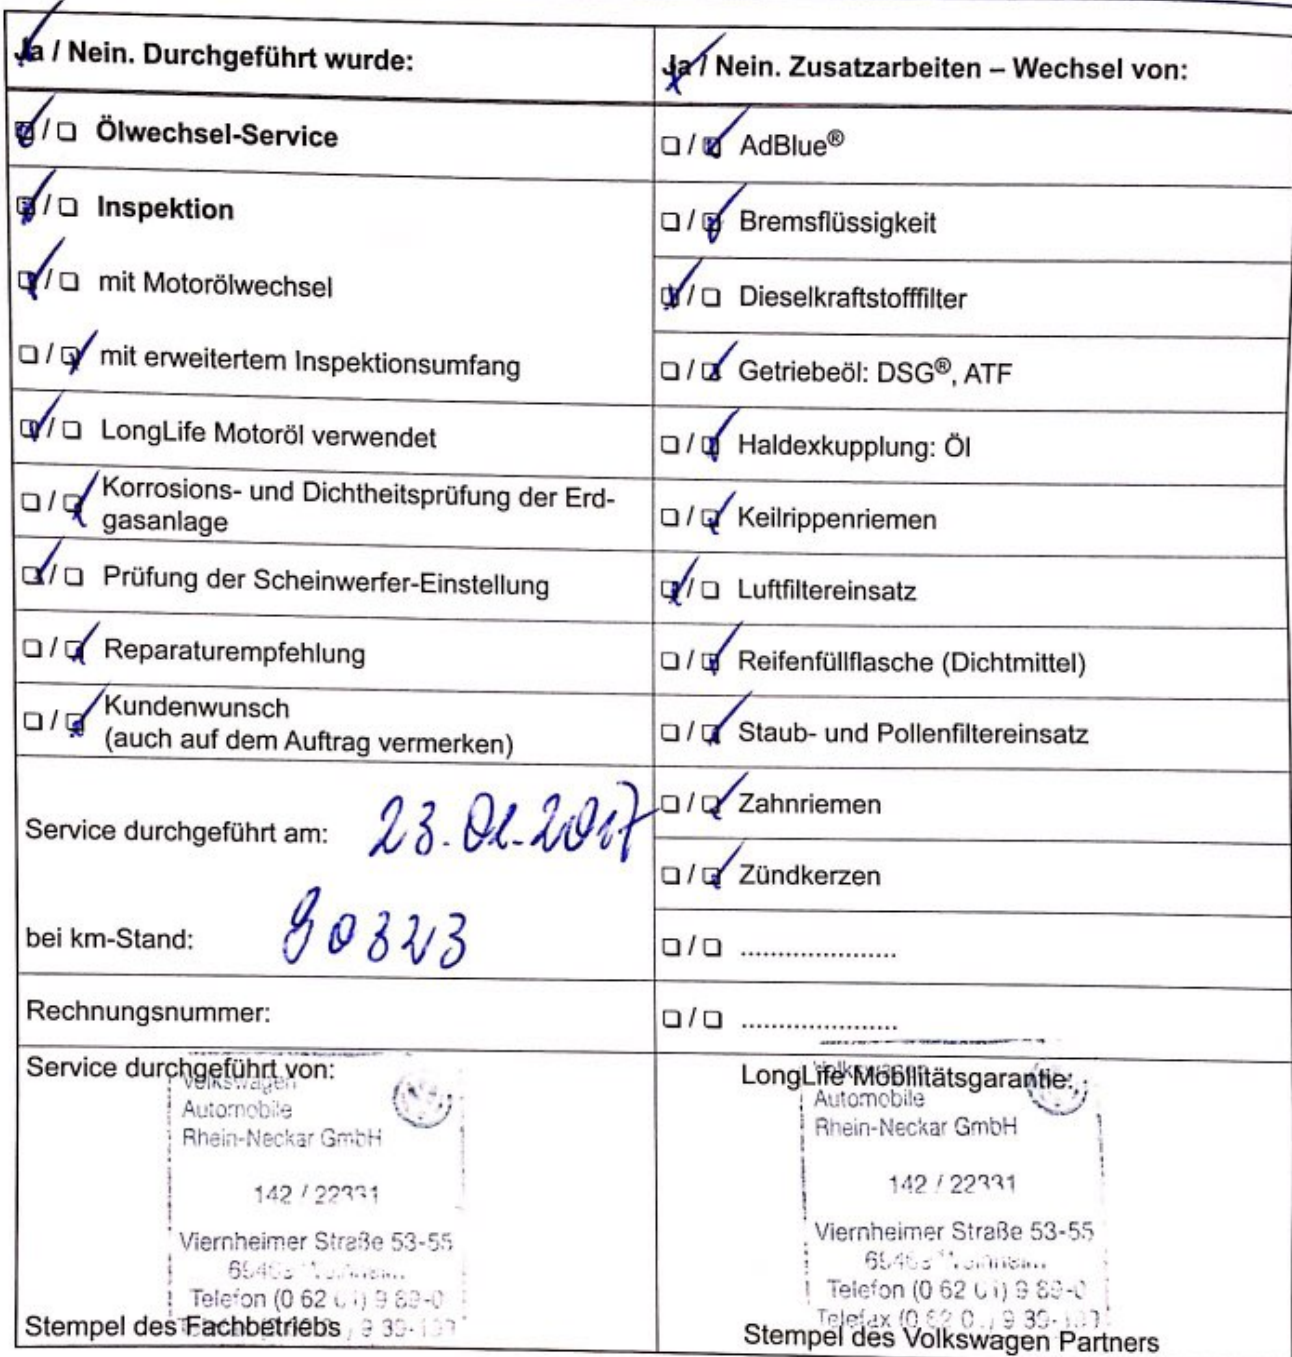 Ja / Nein. Durchgeführt wurde:
☑ / ☐ Ölwechsel-Service
☑ / ☐ Inspektion
☑ / ☐ mit Motorölwechsel
☐ / ☑ mit erweitertem Inspektionsumfang
☑ / ☐ LongLife Motoröl verwendet
☐ / ☑ Korrosions- und Dichtheitsprüfung der Erd-
gasanlage
☑ / ☐ Prüfung der Scheinwerfer-Einstellung
☐ / ☑ Reparaturempfehlung
☐ / ☑ Kundenwunsch
(auch auf dem Auftrag vermerken)
Service durchgeführt am: 23.01.2017
bei km-Stand: 90323
Rechnungsnummer:
Service durchgeführt von:
Volkswagen
Automobile
Rhein-Neckar GmbH
142 / 22331
Viernheimer Straße 53-55
Telefon (0 62 01) 9 89-0
Stempel des Fachbetriebs
Ja / Nein. Zusatzarbeiten – Wechsel von:
☐ / ☑ AdBlue®
☐ / ☑ Bremsflüssigkeit
☑ / ☐ Dieselkraftstofffilter
☐ / ☑ Getriebeöl: DSG®, ATF
☐ / ☑ Haldexkupplung: Öl
☐ / ☑ Keilrippenriemen
☑ / ☐ Luftfiltereinsatz
☐ / ☑ Reifenfüllflasche (Dichtmittel)
☐ / ☑ Staub- und Pollenfiltereinsatz
☐ / ☑ Zahnriemen
☐ / ☑ Zündkerzen
☐ / ☐ .....................
☐ / ☐ .....................
LongLife Mobilitätsgarantie:
Volkswagen
Automobile
Rhein-Neckar GmbH
142 / 22331
Viernheimer Straße 53-55
Telefon (0 62 01) 9 89-0
Stempel des Volkswagen Partners